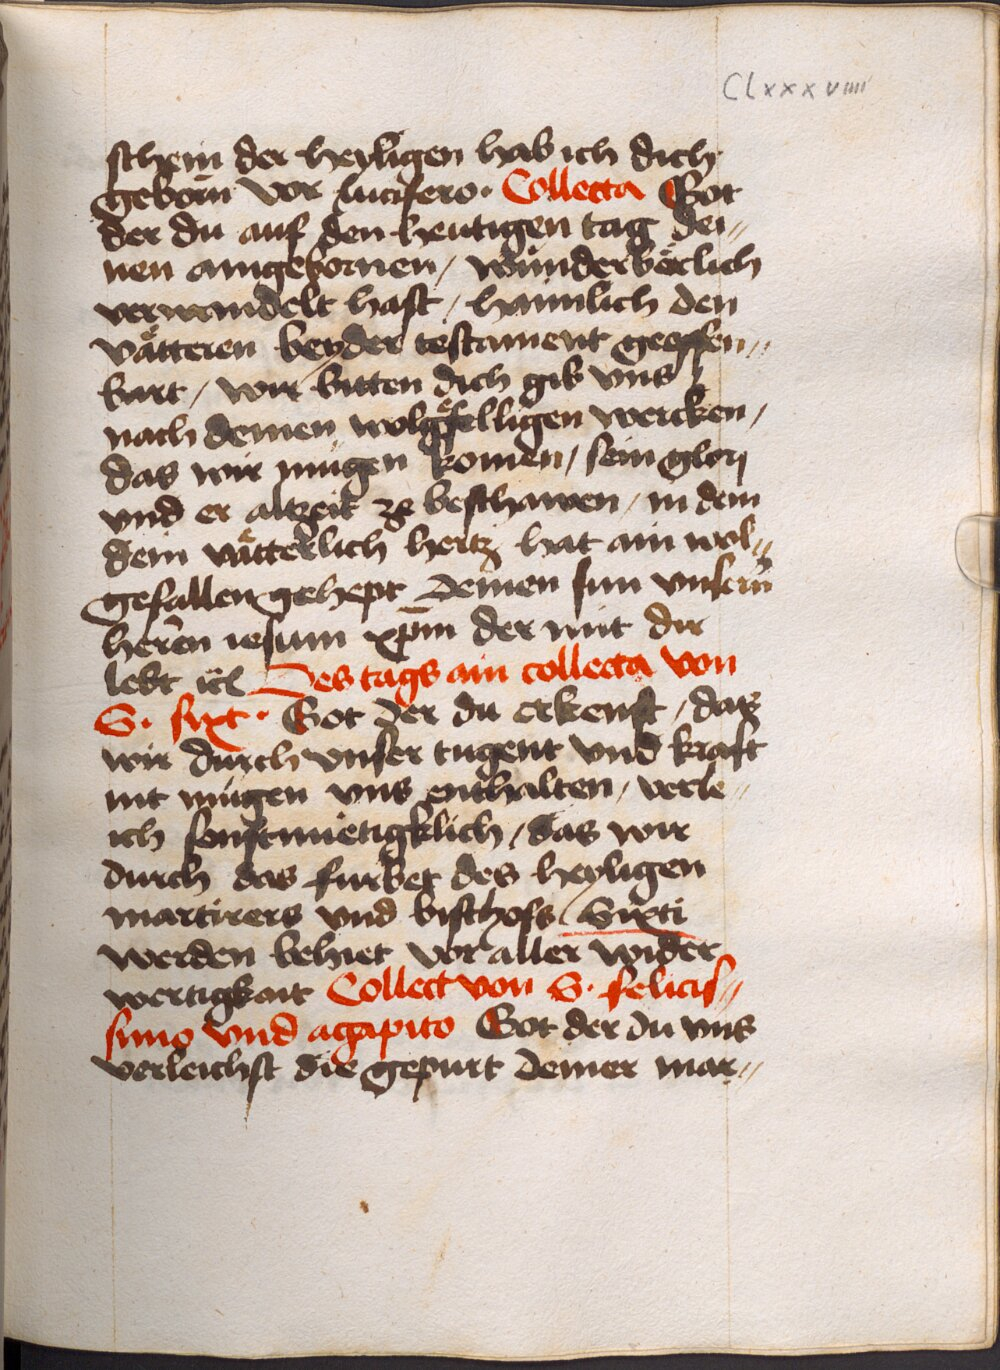 Clxxxviiii
schein der heyligen hab ich dich
geborn vor lucifero. Collecta Got
der du auf den heutigen tag dei„
nen aingebornen / wunderbärlich
verwandelt hast / haimlich den
vätteren beyder testament geoffen„
bart / wir bitten dich gib vns
nach deinen wolgefelligen wercken /
das wir mügen komen / sein glori
vnd er altzeit ze beschawen / in dem
dein vätterlich hertz hat ain wol„
gefallen gehept deinen sun vnsern
heren iesum xp̄m der mit dir
lebt ꝛc̄ Des tags ain collecta von
S. sixt. Got der du erkenst / das
wir durch vnser tugent vnd kraft
nit mügen vns enthalten / verle„
ich senftmüetigklich / das wir
durch das furbet des heyligen
martirers vnd bischofs / Sixti
werden behiet vor aller wider
wertigkait Collect von S. felicis„
simo vnd agapito Got der du vns
verleichst die gepurt deiner mar„